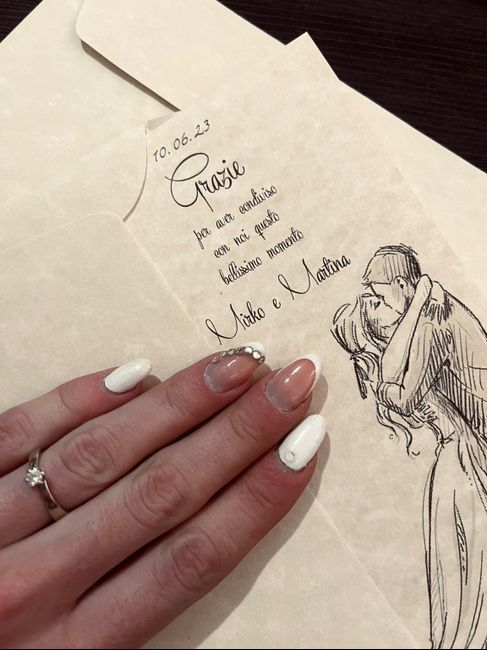 10.06.23
Grazie
per aver condiviso
con noi questo
bellissimo momento
Mirko e Martina